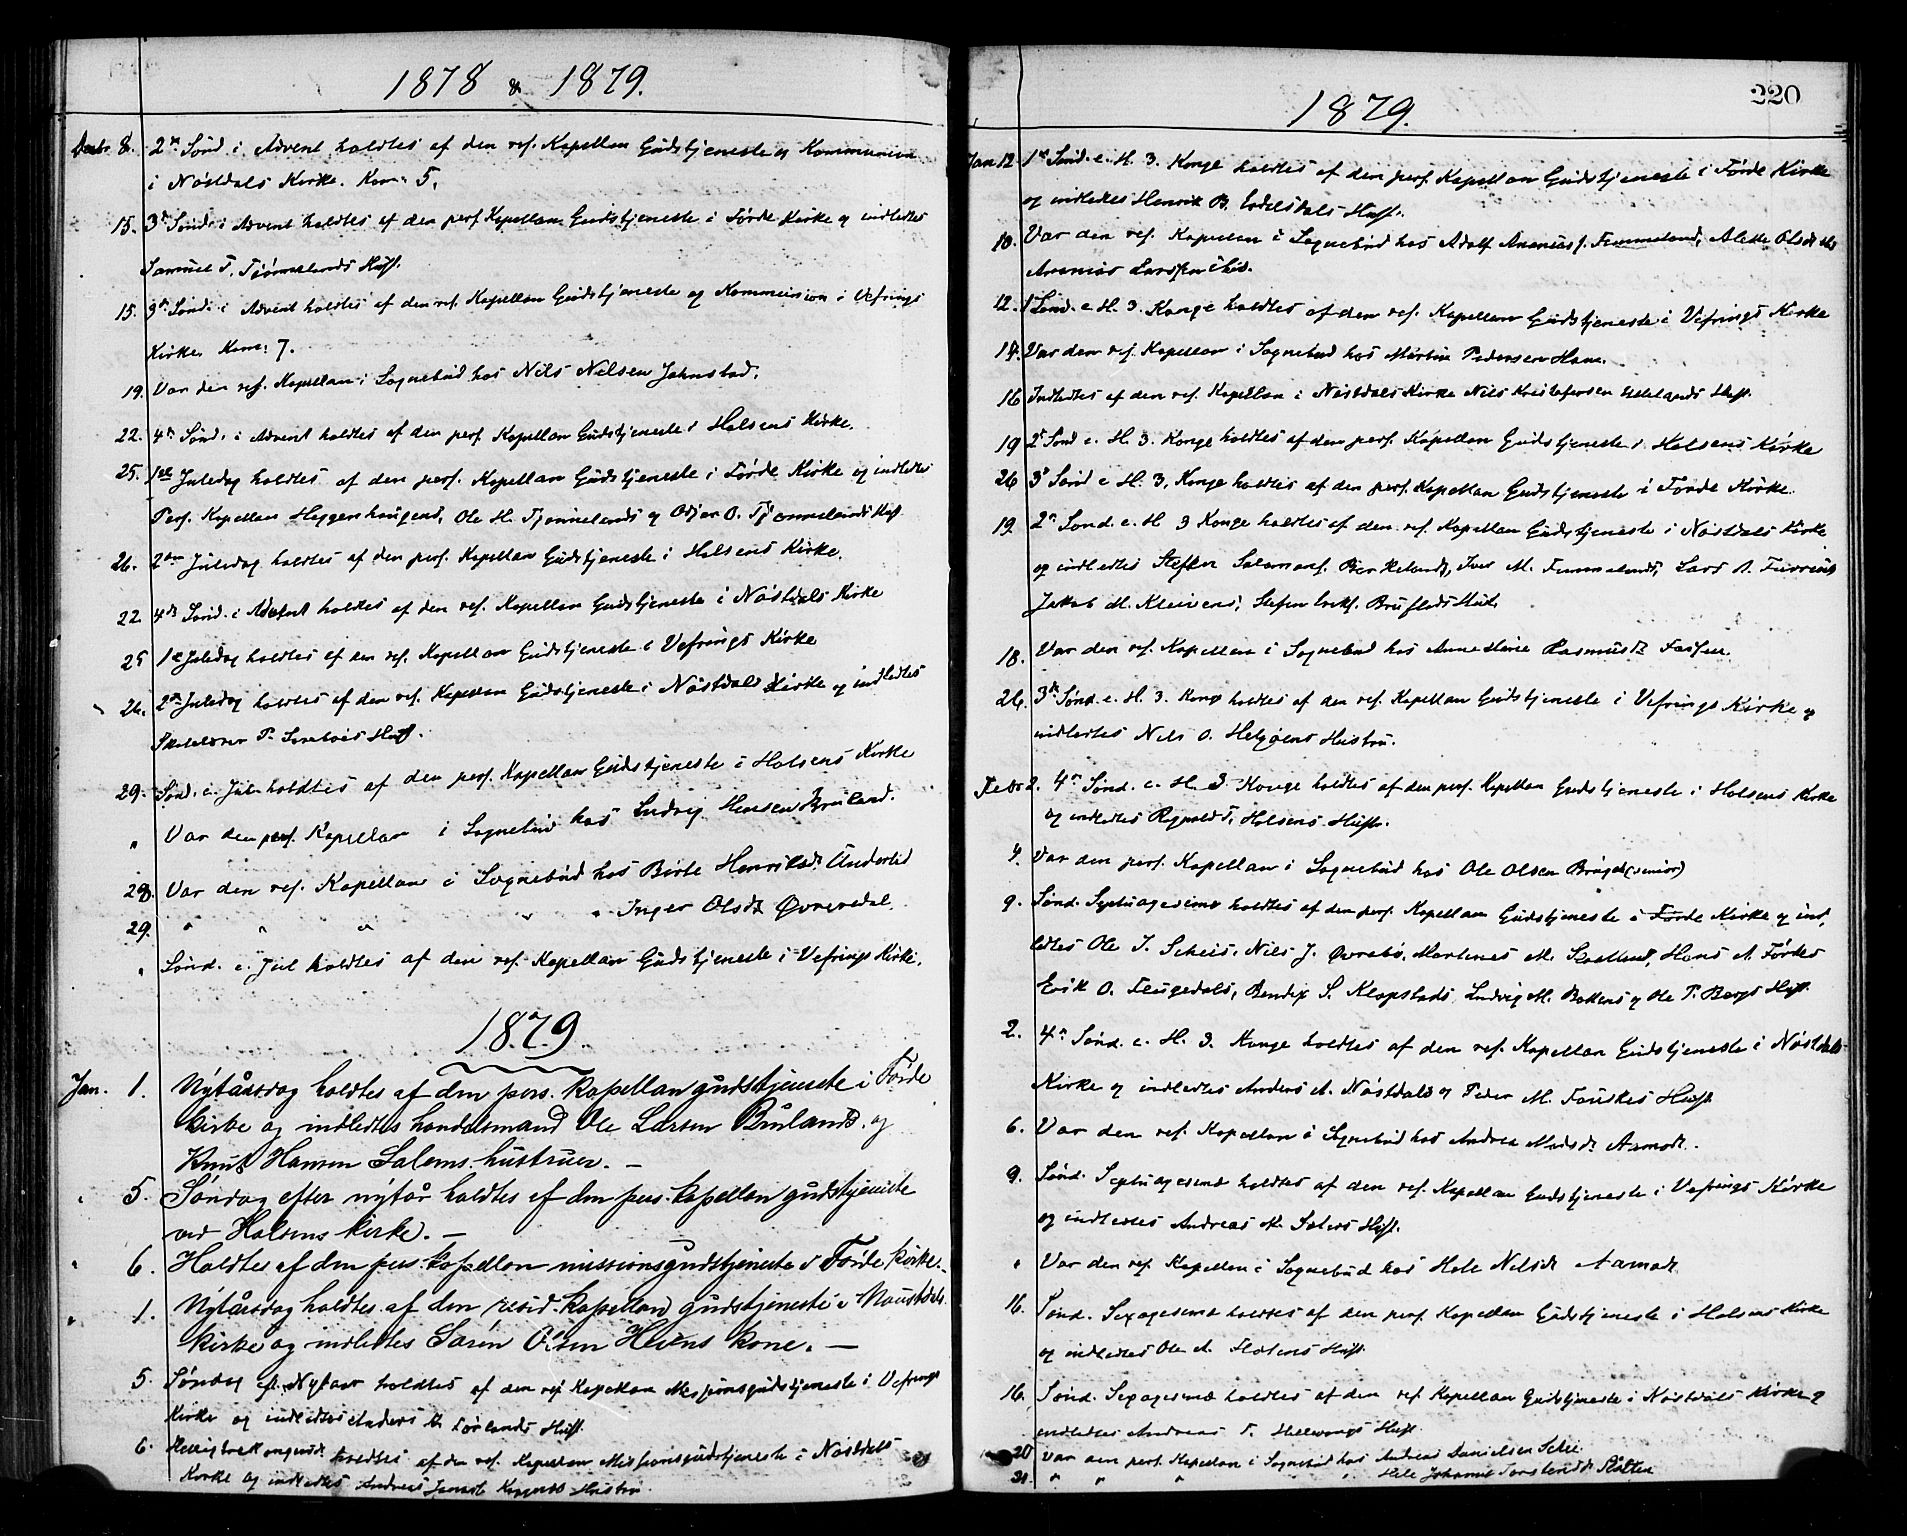 1878 & 1879.
Decbr 8. 2den Sönd. i Advent holdtes af den res. Kapellan Gudstjeneste og Kommunion
i Nöstdals Kirke. Kom: 5.
15. 3d Sönd. i Advent holdtes af den pers. Kapellan Gudstjeneste i Förde Kirke og indledtes
Samuel T. Tjönnelands Hust.
15. 3d Sönd. i Advent holdtes af den res. Kapellan Gudstjeneste og Kommunion i Vefrings
Kirke. Kom: 7.
19. Var den res. Kapellan i Sognebud hos Nils Nilsen Jahnstad.
22. 4de Sönd. i Advent holdtes af den pers. Kapellan Gudstjeneste i Holsens Kirke.
25. 1ste Juledag holdtes af den pers. Kapellan Gudstjeneste i Förde Kirke og indledtes
Pers. Kapellan Heggenhaugens, Ole H. Tjönnelands og O. Tjönnelands Hust.
26. 2den Juledag holdtes af den pers. Kapellan Gudstjeneste i Holsens Kirke.
22. 4de Sönd. i Advent holdtes af den res. Kapellan Gudstjeneste i Nöstdals Kirke
25 1ste Juledag holdtes af den res. Kapellan Gudstjeneste i Vefrings Kirke
26. 2den Juledag holdtes af den res. Kapellan Gudstjeneste i Nöstdals Kirke og indledtes
Skolelærer P. Hust.
29. Sönd. e. Jul holdtes af den pers. Kapellan Gudstjeneste i Holsens Kirke
" Var den pers. Kapellan i Sognebud hos Ludvig Hansen Bruland.
28. Var den res. Kapellan i Sognebud hos Birte Henriksdt Underlid
29. " " " " " Inger Olsdt Övrevdal.
" Sönd. e. Jul holdtes af den res. Kapellan Gudstjeneste i Vefrings Kirke.
1879.
Jan. 1. Nytårsdag holdtes af den pers. kapellan gudstjeneste i Förde
kirke og indledtes handelsmand Ole Larsen Brulands og
Knut Hansen Salems hustruer. —
" 5. Söndag efter nytår holdtes af den pers. kapellan gudstjeneste
ved Holsens kirke. —
" 6. Holdtes af den pers. kapellan missionsgudstjeneste i Förde kirke. —
" 1. Nytårsdag holdtes af den resid. kapellan gudstjeneste i Naustdals
kirke og indledtes Sören Olsen Hevns kone. —
5. Söndag eft. Nytaar holdtes af den res Kapellan Missionsgudstjeneste i Vefrings
Kirke og indledtes Anders Hust.
6. Hellig tre Kongersd. holdtes af den res. Kapellan Missionsgudstjeneste i Nöstdals
Kirke og indledtes Andreas Hustru.
220
1879.
Jan 12. 1ste Sönd. e. H. 3. Konge holdtes af den pers. Kapellan Gudstjeneste i Förde Kirke
og indledtes Henrik B. Hust.
10. Var den res. Kapellan i Sognebud hos Adolf Ananias Alette Olsdt
Ananias Larssen
12. 1 Sönd. e. H. 3. Konge holdtes af den res. Kapellan Gudstjeneste i Vefrings Kirke
14. Var den res. Kapellan i Sognebud hos Martin Pedersen
16 Indledtes af den res. Kapellan i Nöstdals Kirke Nils Kristofersen Hust.
19 2d Sönd e. H. 3. Konge holdtes af den pers. Kapellan Gudstjeneste i Holsens Kirke
26 3d Sönd e H. 3. Konge holdtes af den pers. Kapellan Gudstjeneste i Förde Kirke.
19. 2den Sönd. e. H 3 Konge holdtes af den res. Kapellan Gudstjeneste i Nöstdals Kirke
og indledtes Steffen Salamons. Birkelands, Iver M. Lars A.
Jakob M. Kleivens, Stefen Bruflads Hust.
18. Var den res. Kapellan i Sognebud hos Anne Marie Rasmusdt
26. 3d Sönd. e. H. 3. Konge holdtes af den res. Kapellan Gudstjeneste i Vefrings Kirke og
indledtes Nils O. Helgöens Hustru.
Febr 2. 4de Sönd. e. H. 3 Konge holdtes af den pers. Kapellan Gudstjeneste i Holsens Kirke
og indledtes T. Holsens Hustr.
4. Var den pers. Kapellan i Sognebud hos Ole Olsen (senior)
9. Sönd. Septuagesima holdtes af den pers. Kapellan Gudstjeneste i Förde Kirke og ind-
ledtes Ole J. Nils J. Övrebö, Martines M. Hans A.
Erik O. Bendix S. Klopstads, Ludvig M. Bakkens og Ole P. Bergs Hust.
2. 4de Sönd. e. H. 3. Konge holdtes af den res. Kapellan Gudstjeneste i Nöstdals
Kirke og indledtes Anders A. Nöstdals og Peder M. Fauskes Hust.
6. Var den res. Kapellan i Sognebud hos Andrea Madsdt
9. Sönd. Septuagesima holdtes af den res. Kapellan Gudstjeneste i Vefrings Kirke
og indledtes Andreas Hust.
" Var den res. Kapellan i Sognebud hos Nilsdt
16. Sönd. Sexagesima holdtes af den pers. Kapellan Gudstjeneste i Holsens Kirke
og indledtes Ole A. Hust.
16. Sönd. Sexagesimæ holdtes af den res. Kapellan Gudstjeneste i Nöstdals Kirke og
indledtes Andreas Hust.
20 Var den pers. Kapellan i Sognebud hos Andreas Danielsen
21. " " " " Johanne Torstensdt